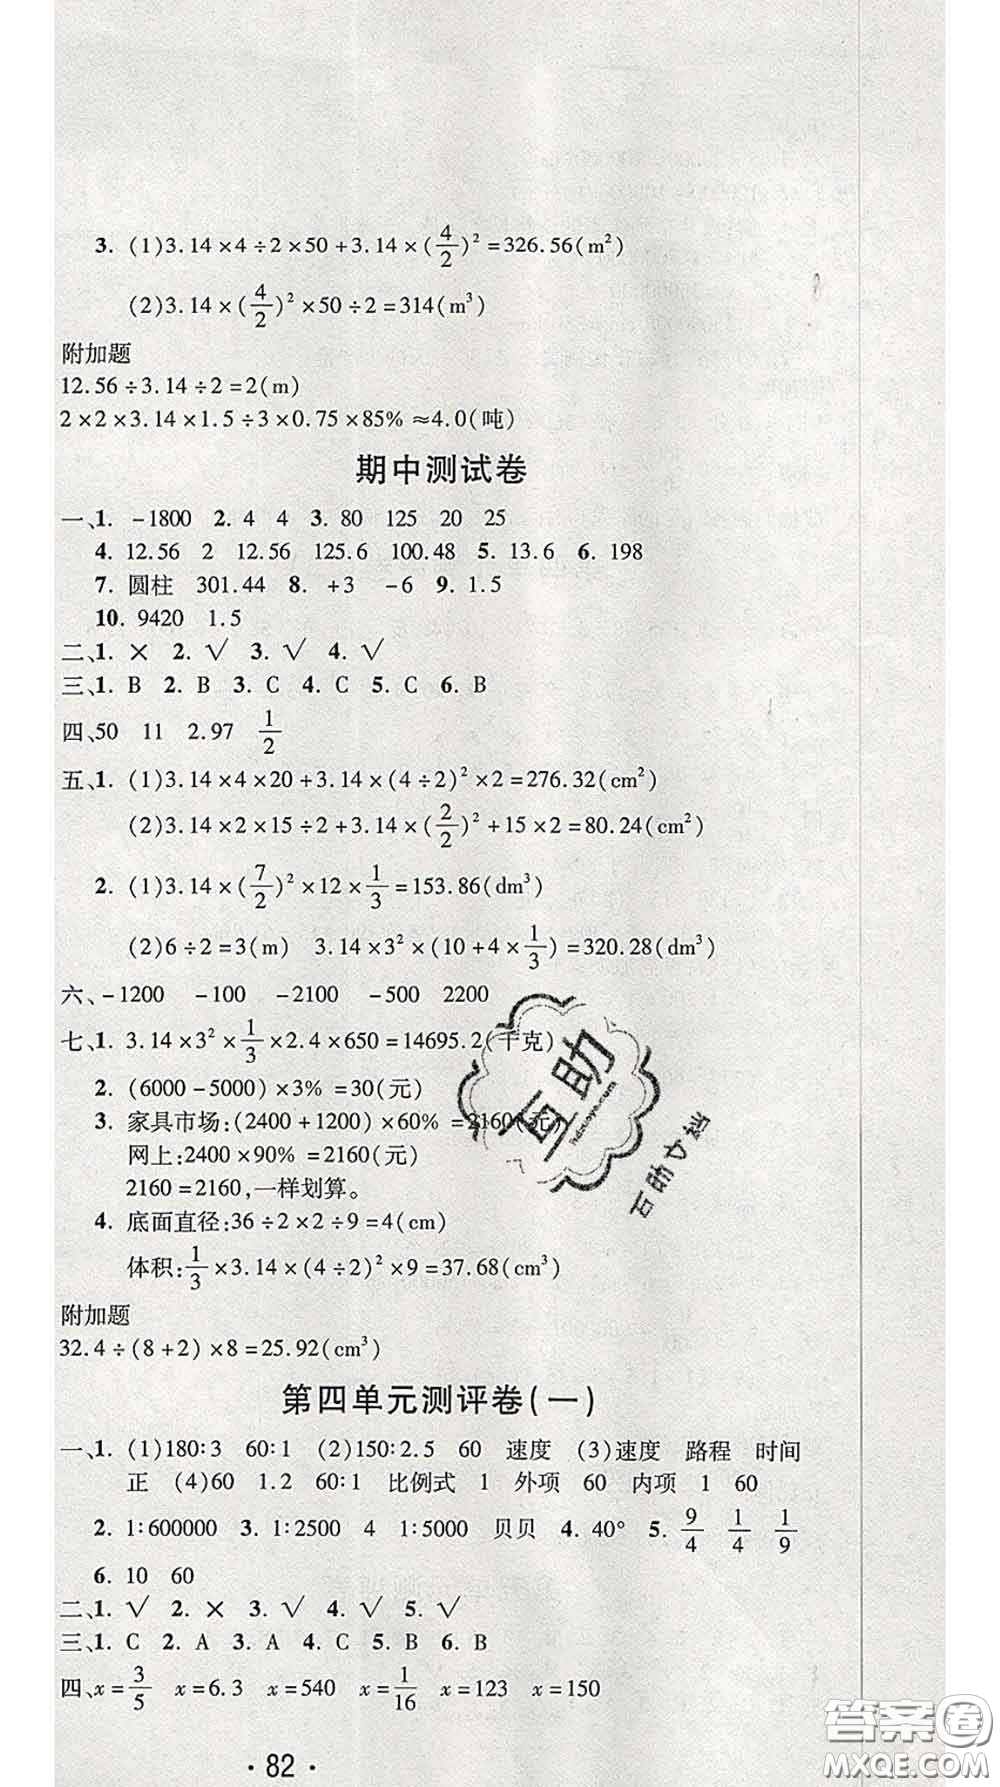 3. (1)3.14×4÷2×50+3.14×(4/2)²=326.56(m²)
(2)3.14×(4/2)²×50÷2=314(m³)
附加题
12.56÷3.14÷2=2(m)
2×2×3.14×1.5÷3×0.75×85%≈4.0(吨)
期中测试卷
一、1. -1800 2. 4 4 3. 80 125 20 25
4. 12.56 2 12.56 125.6 100.48 5. 13.6 6. 198
7. 圆柱 301.44 8. +3 -6 9. 1.5
10. 9420 1.5
二、1. × 2. √ 3. √ 4. √
三、1. B 2. B 3. C 4. C 5. C 6. B
四、50 11 2.97 1/2
五、1. (1)3.14×4×20+3.14×(4÷2)²×2=276.32(cm²)
(2)3.14×2×15÷2+3.14×(2/2)²+15×2=80.24(cm²)
2. (1)3.14×(7/2)²×12×1/3=153.86(dm³)
(2)6÷2=3(m) 3.14×3²×(10+4×1/3)=320.28(dm³)
六、-1200 -100 -2100 -500 2200
七、1. 3.14×3²×1/3×2.4×650=14695.2(千克)
2. (6000-5000)×3%=30(元)
3. 家具市场:(2400+1200)×60%=2160(元)
网上:2400×90%=2160(元)
2160=2160,一样划算。
4. 底面直径:36÷2×2÷9=4(cm)
体积:1/3×3.14×(4÷2)²×9=37.68(cm³)
附加题
32.4÷(8+2)×8=25.92(cm³)
第四单元测评卷(一)
一、1. (1)180:3 60:1 (2)150:2.5 60 速度 (3)速度 路程 时间
正 (4)60 1.2 60:1 比例式 1 外项 60 内项 1 60
2. 1:600000 3. 1:2500 4 1:5000 贝贝 4. 40° 5. 9/4 1/4 1/9
6. 10 60
二、1. √ 2. × 3. √ 4. √ 5. √
三、1. C 2. A 3. A 4. C 5. B 6. B
四、x=3/5 x=6.3 x=540 x=1/16 x=123 x=150
· 82 ·
互助
答案圈
MXQE.COM